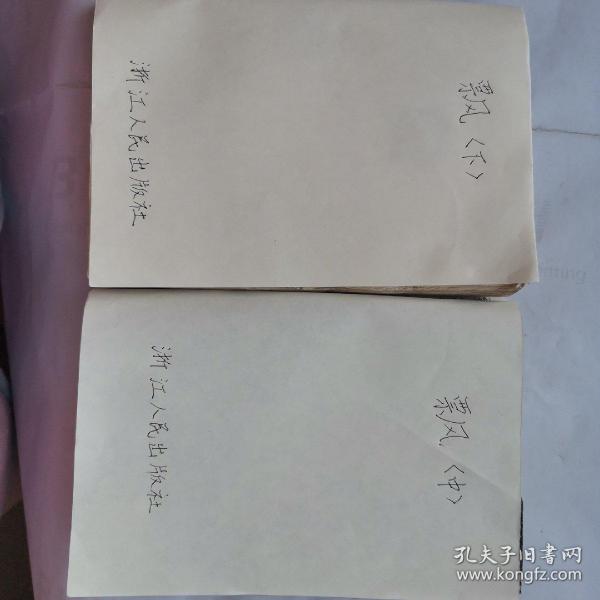 飘〈下〉
浙江人民出版社
飘〈中〉
浙江人民出版社
孔夫子旧書网
www.kongfz.com